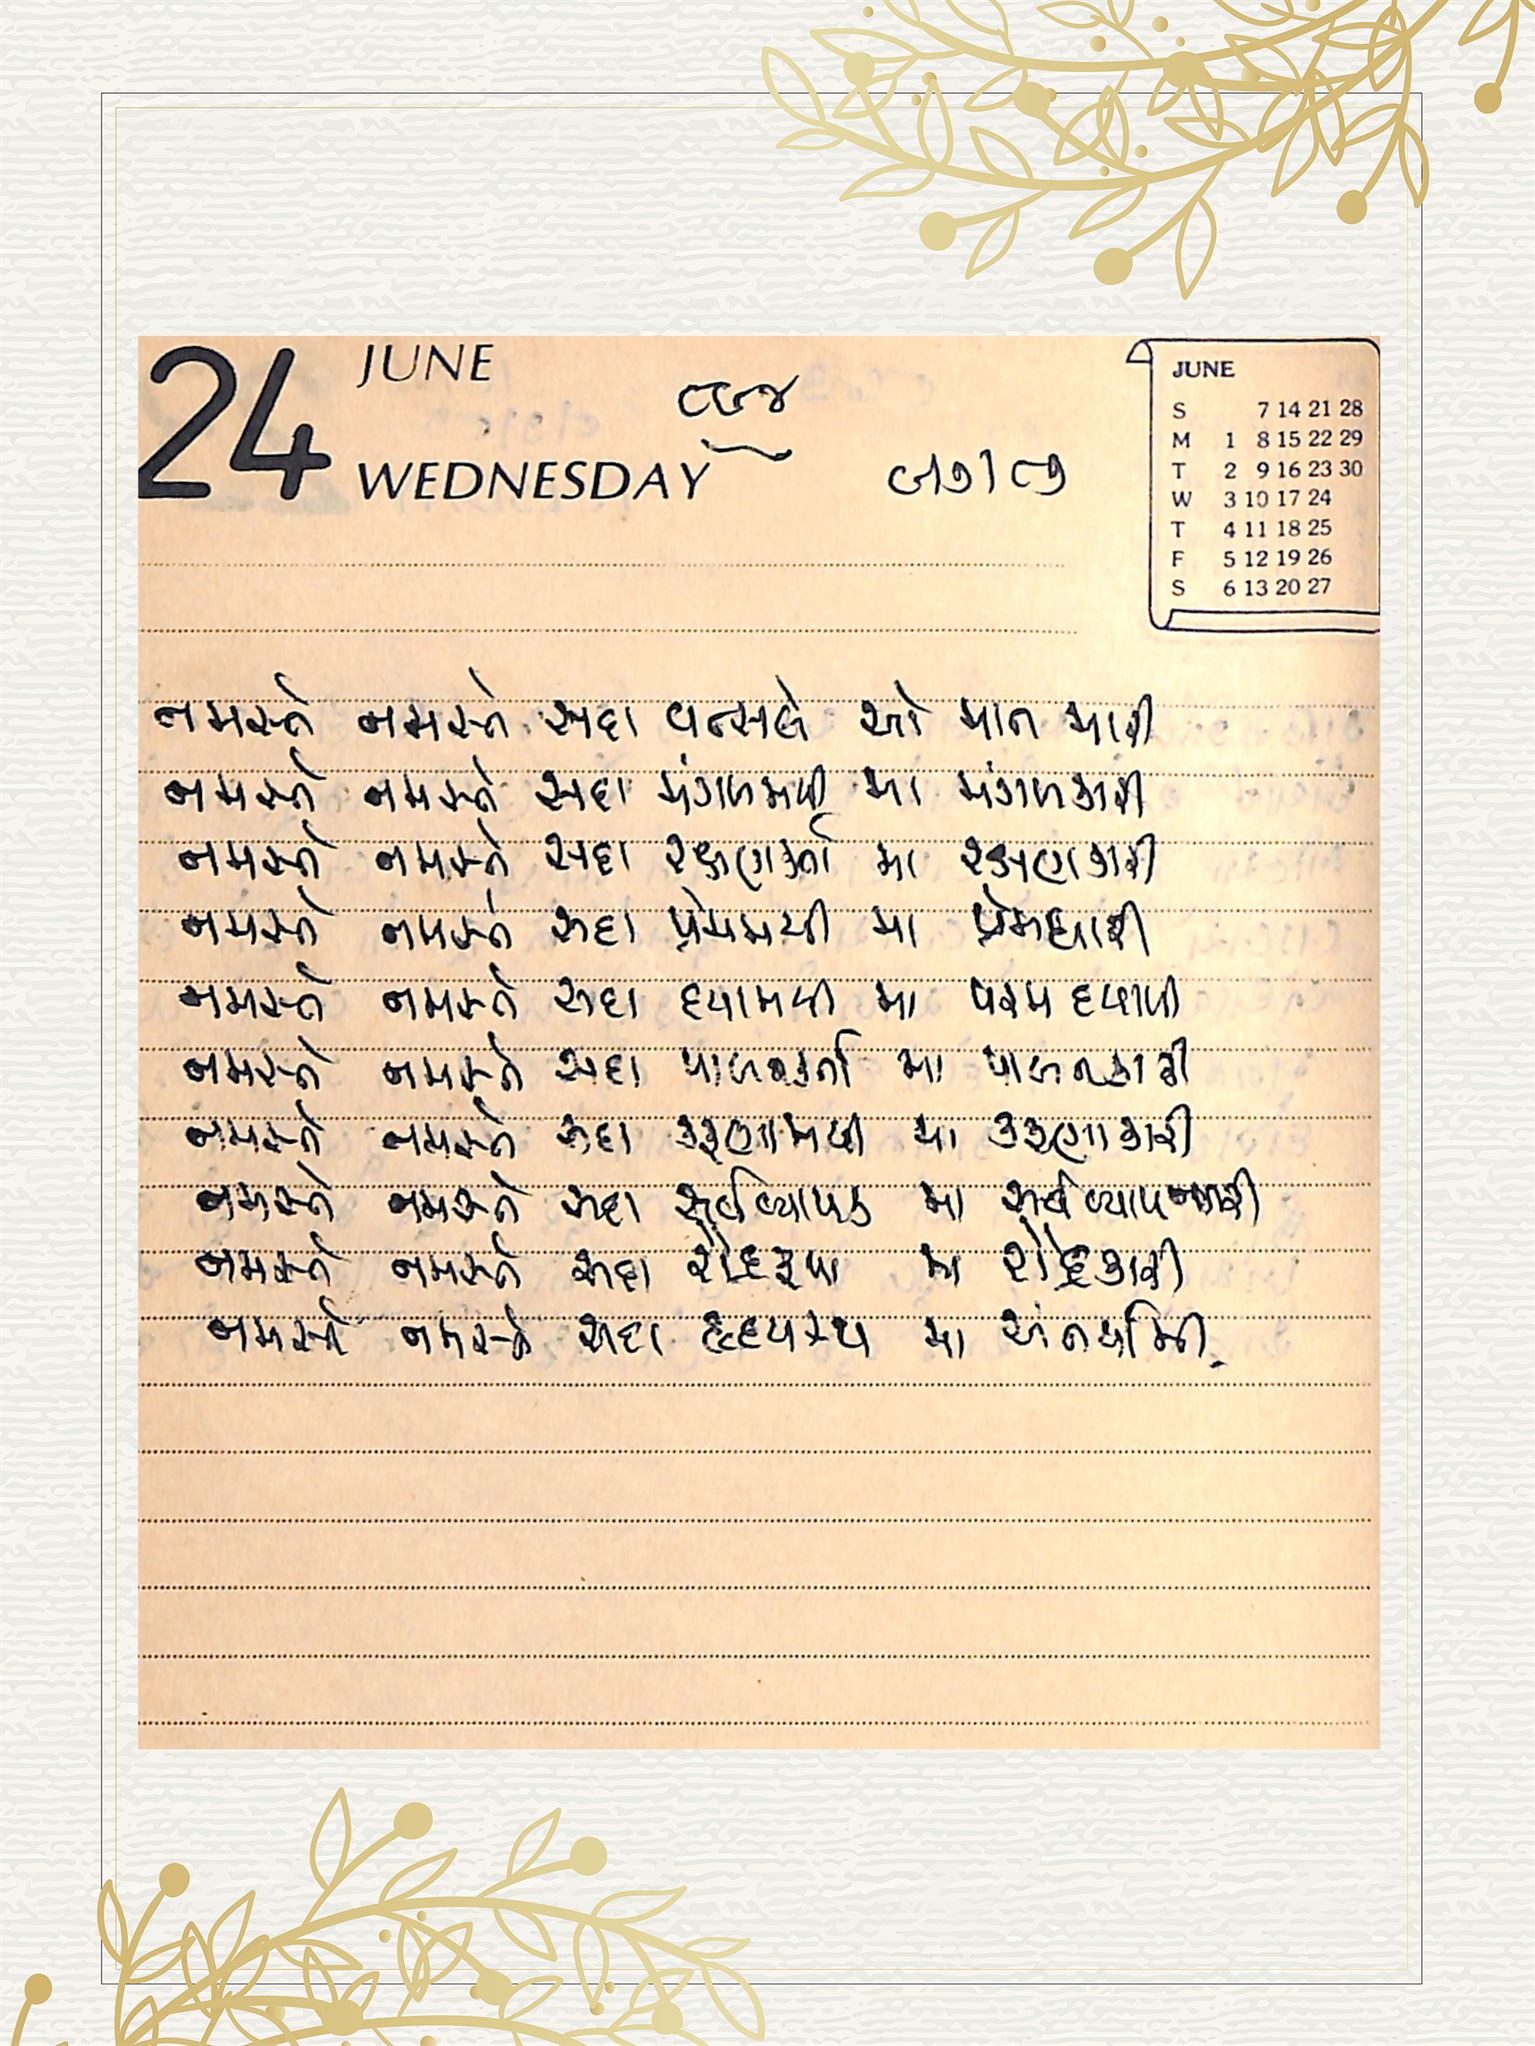 24
JUNE
WEDNESDAY
JUNE
S 7 14 21 28
M 1 8 15 22 29
T 2 9 16 23 30
W 3 10 17 24
T 4 11 18 25
F 5 12 19 26
S 6 13 20 27
નમસ્તે નમસ્તે સદા વત્સલે ઓ માત મારી
નમસ્તે નમસ્તે સદા મંગળમયી મા મંગળકારી
નમસ્તે નમસ્તે સદા રક્ષણકર્તા મા રક્ષણકારી
નમસ્તે નમસ્તે સદા પ્રેમમયી મા પ્રેમધારી
નમસ્તે નમસ્તે સદા દયામયી મા પરમ દયાળી
નમસ્તે નમસ્તે સદા પાળનકર્તા મા પાળનકારી
નમસ્તે નમસ્તે સદા કરૂણામયી મા કરૂણાકારી
નમસ્તે નમસ્તે સદા સર્વવ્યાપક મા
નમસ્તે નમસ્તે સદા રૌદ્રરૂપા મા રૌદ્રકારી
નમસ્તે નમસ્તે સદા હૃદયસ્થ મા અંતર્યામિની.